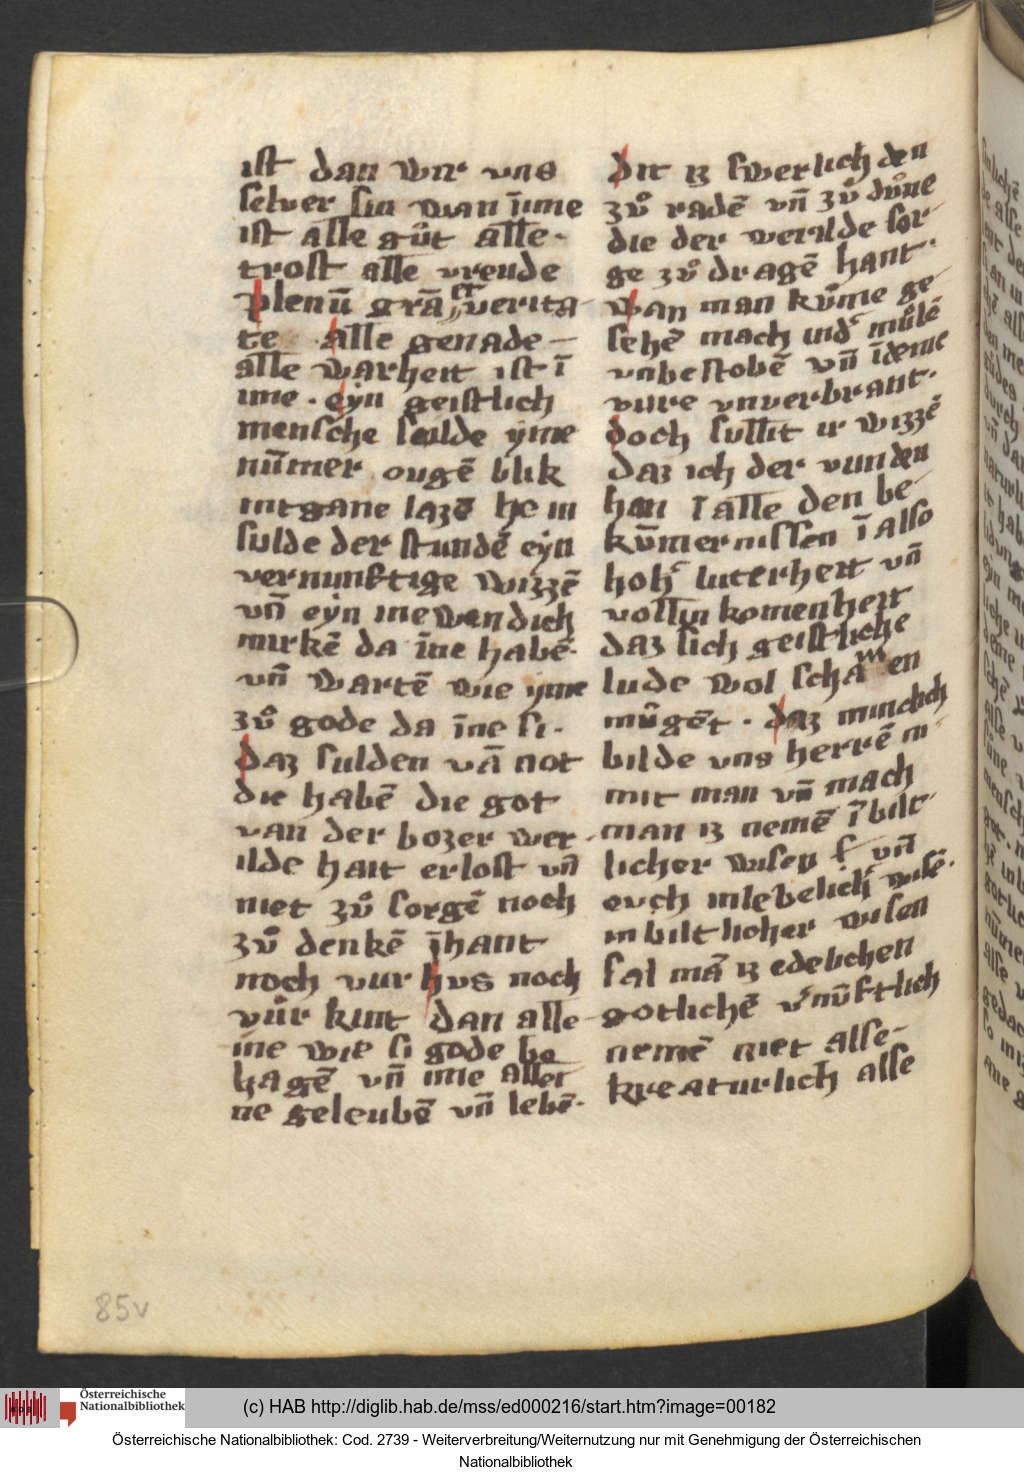 ist dan wir vns
selver sin wan īıme
ist alle gůt alle-
trost alle vreude
plenū grā et verita-
te alle genade —
alle warheit ist ī
ime . eyn geistlich
mensche sulde yme
nūmer ougē blik
intgane lazē he in
sulde der stundē eyn
vernunftige wizzē
vn̄ eyn inewendich
mirkē da īne habē.
vn̄ wartē wie yme
zů gode da īne si .
daz sulden vā not
die habē die got
van der bozer wer-
ilde hait erlost vn̄
niet zů sorgē noch
zů denkē īhant
noch vur hus noch
vůr kint dan alle-
ine wie si gode be
hagē vn̄ ime aller
ne geleubē vn̄ lebē.
dit iz swerlich den
zů radē vn̄ zů důne
die der werilde sor-
ge zů dragē hant.
wan man kůme ge-
sehē mach můlē
vnbestobē vn̄ ī deme
vure vnverbrant.
doch sullit ir wizzē
daz ich der vunden
han ī alle den be-
kūmernissen ī also
hoh' luterheit vn̄
vollin komenheit
daz sich geistliche
lude wol scha m en
můgēt . daz minclich
bilde vns herrē in
mit man vn̄ mach
man iz nemē ī bilt-
licher wisen vn̄
ouch inlebelich' wisē.
in biltlicher wisen
sal mā iz edelichen
gotlichē v'nūftlich
nemē niet alle-
kreaturlich alse
85v
Österreichische
Nationalbibliothek
(c) HAB http://diglib.hab.de/mss/ed000216/start.htm?image=00182
Österreichische Nationalbibliothek: Cod. 2739 - Weiterverbreitung/Weiternutzung nur mit Genehmigung der Österreichischen
Nationalbibliothek